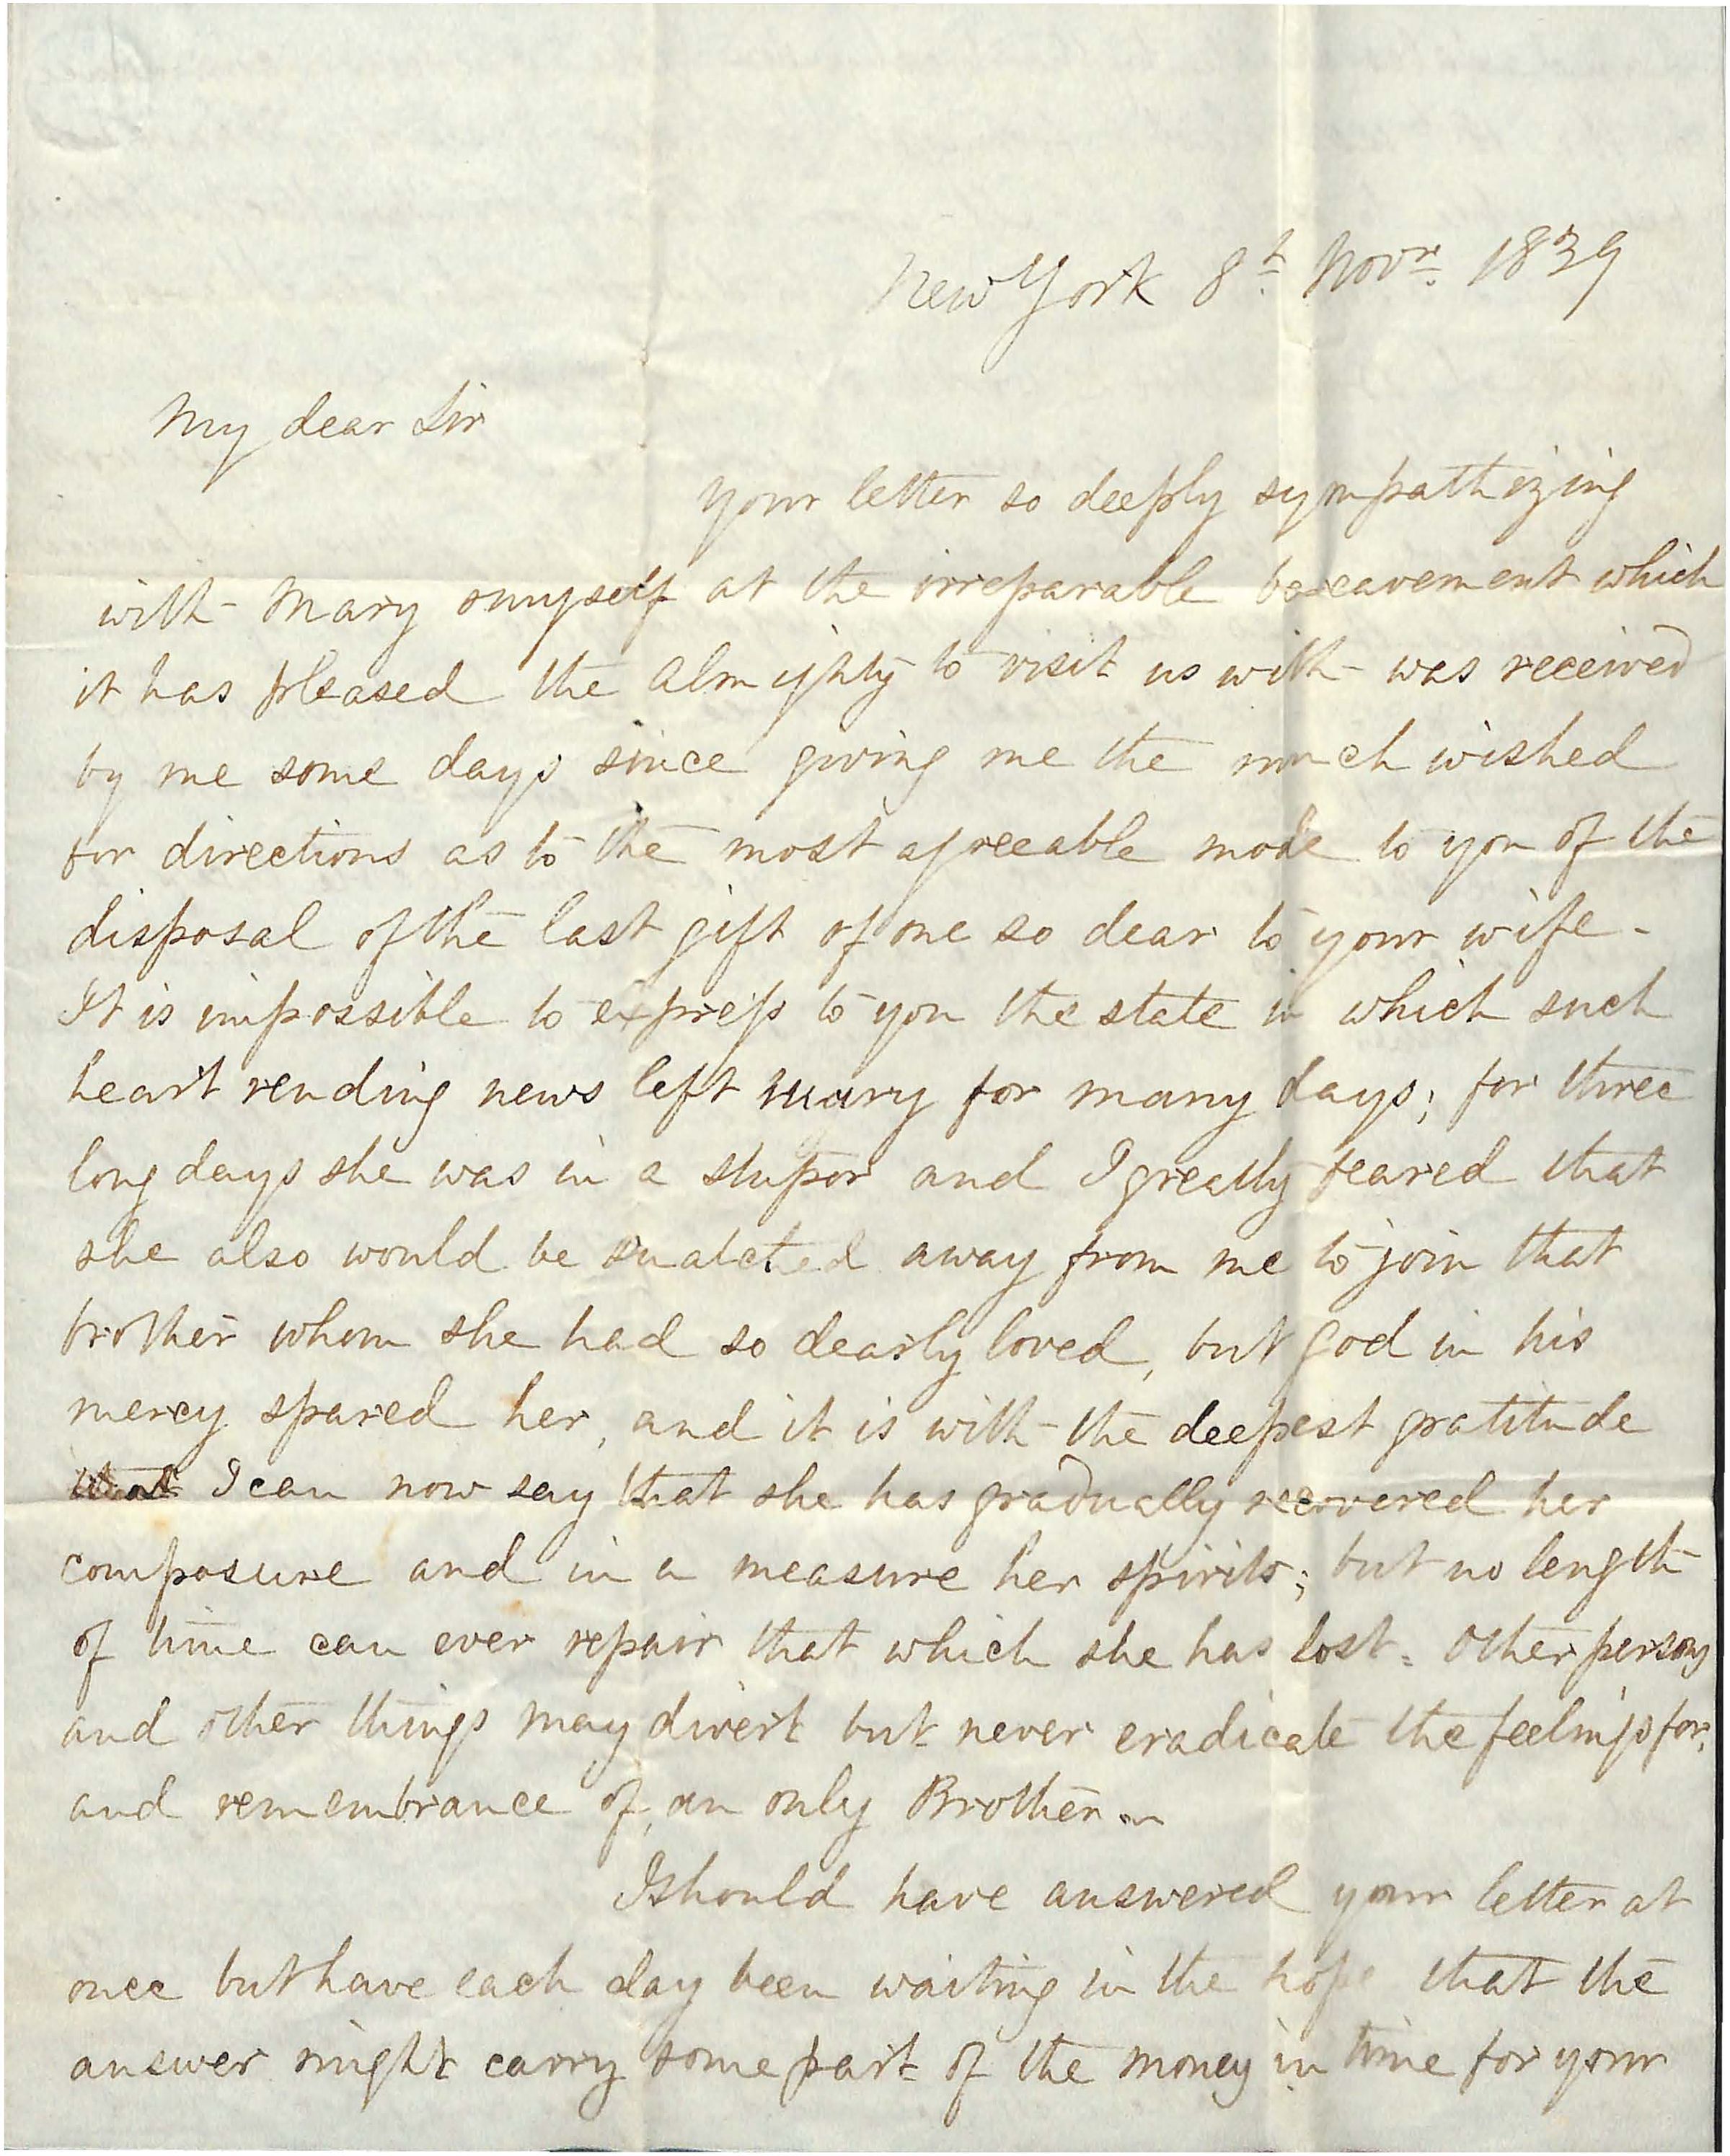 New York 8th Novr. 1839
My dear Sir
Your letter so deeply sympathizing
with Mary & myself at the irreparable bereavement which
it has pleased the Almighty to visit us with was received
by me some days since giving me the much wished
for directions as to the most agreeable mode to you of the
disposal of the last gift of one so dear to your wife -
It is impossible to express to you the state in which such
heart rending news left Mary for many days; for three
long days she was in a stupor and I greatly feared that
she also would be snatched away from me to join that
brother whom she had so dearly loved, but God in his
mercy spared her, and it is with the deepest gratitude
that I can now say that she has gradually recovered her
composure and in a measure her spirits; but no length
of time can ever repair that which she has lost. Other persons
and other things may divert but never eradicate the feelings for,
and remembrance of, an only Brother.
I should have answered your letter at
once but have each day been waiting in the hope that the
answer might carry some part of the money in time for your